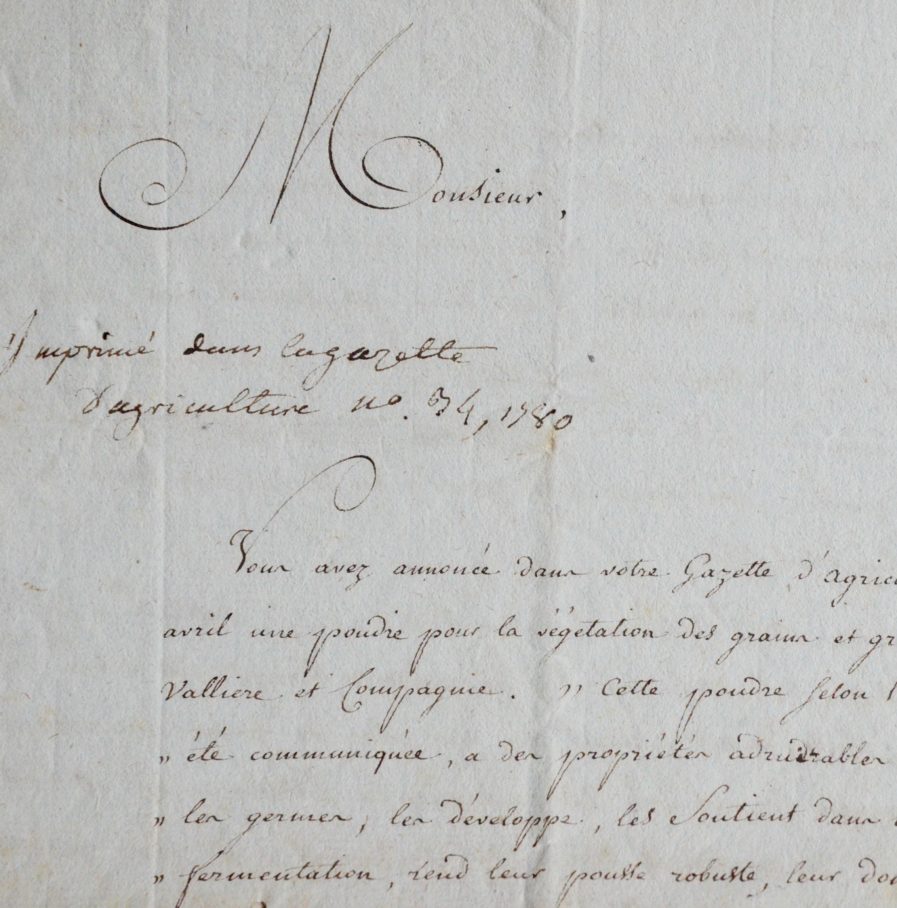 Monsieur,
Imprimé dans la gazette
D'agriculture no. 34, 1780
Vous avez annoncé dans votre Gazette d'agric
avril une poudre pour la végétation des grains et gr
Valliere et Compagnie. " Cette poudre selon l
" été communiquée, a des propriétés
" les germes, les développe, les Soutient dans
" fermentation, rend leur pousse robuste, leur do